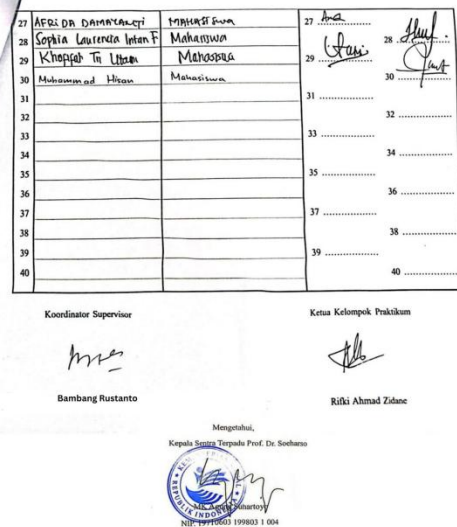 27 AFRIDA DAMAYANTI MAHASISWA 27
28 Sophia Laurencia Intan F Mahasiswa 28
29 Tri Utami Mahasiswa 29
30 Muhammad Hisan Mahasiswa 30
31 31
32 32
33 33
34 34
35 35
36 36
37 37
38 38
39 39
40 40
Koordinator Supervisor Ketua Kelompok Praktikum
Bambang Rustanto Rifki Ahmad Zidane
Mengetahui,
Kepala Sentra Terpadu Prof. Dr. Soeharso
REPUBLIK INDONESIA
Suhartoyo
NIP. 19710603 199803 1 004